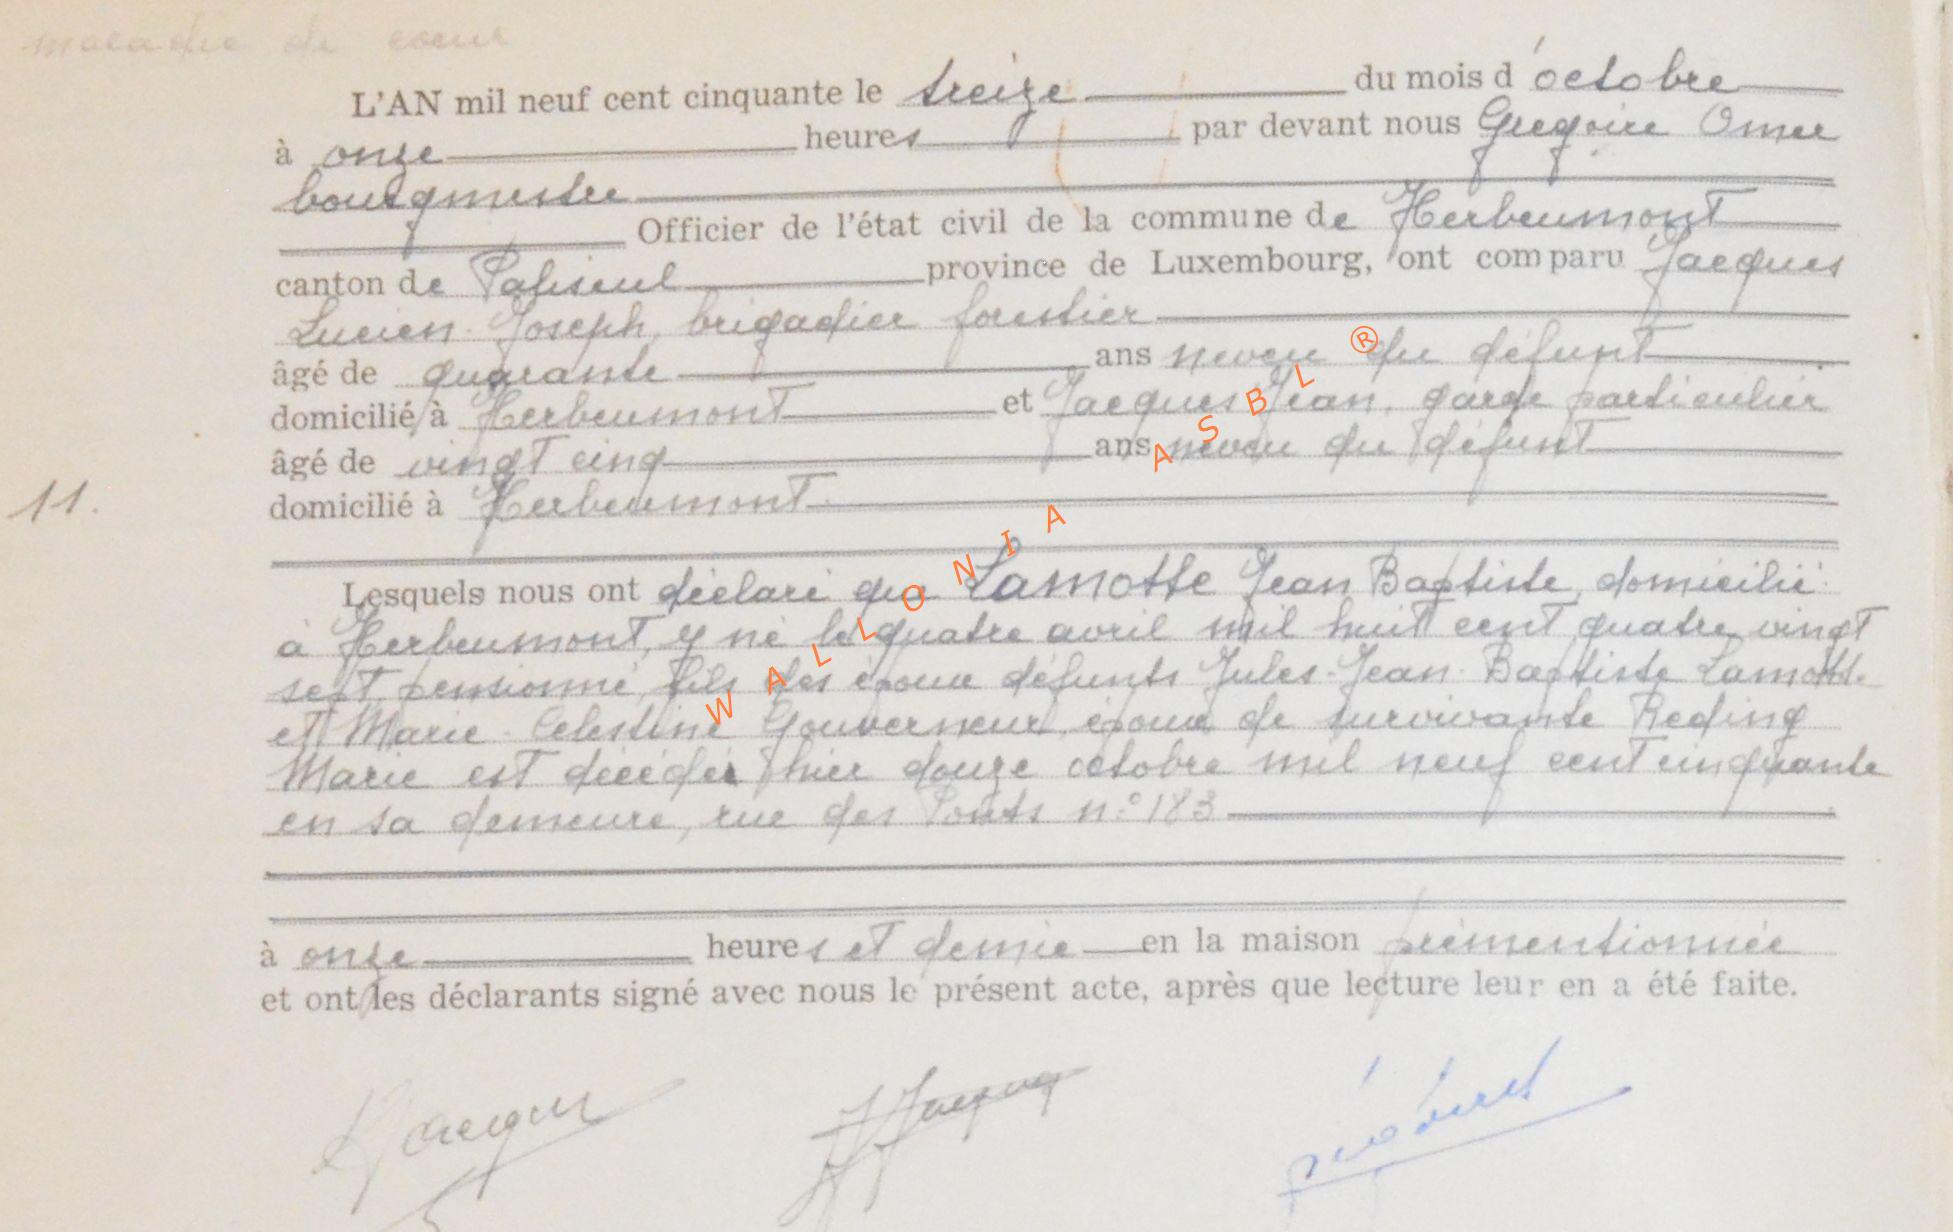 maladie de coeur
L'AN mil neuf cent cinquante le treize du mois d'octobre
à onze heures par devant nous Gregoire Omer
bourgmestre
Officier de l'état civil de la commune de Herbeumont
canton de Paliseul province de Luxembourg, ont comparu Jacques
Lucien Joseph, brigadier forestier
âgé de quarante ans neveu du défunt
domicilié à Herbeumont et Jacques Jean, garde particulier
âgé de vingt cinq ans neveu du défunt
domicilié à Herbeumont
11.
Lesquels nous ont déclaré que Lamotte Jean Baptiste, domicilié
à Herbeumont, y né le quatre avril mil huit cent quatre vingt
sept, pensionné, fils des époux défunts Jules-Jean-Baptiste Lamotte
et Marie-Celestine Gouverneur, époux de survivante Reding
Marie est décédé hier douze octobre mil neuf cent cinquante
en sa demeure, rue des Ponts n° 183
à onze heures et demie en la maison prémentionnée
et ont les déclarants signé avec nous le présent acte, après que lecture leur en a été faite.
LJacques JJacques
WALLONIA ASBL ®